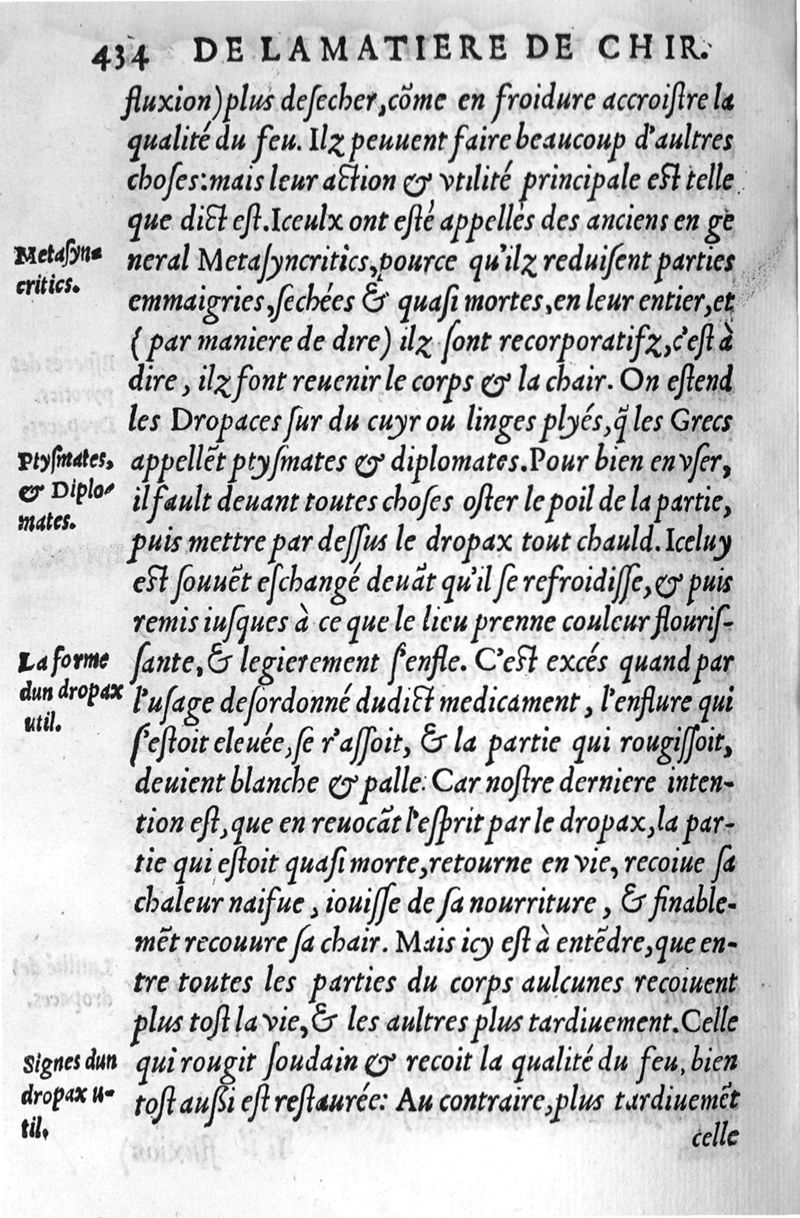 434 DE LA MATIERE DE CHIR.
fluxion) plus deſecher, cõme en froidure accroiſtre la
qualité du feu. Ilz peuuent faire beaucoup d'aultres
choſes: mais leur action & vtilité principale eſt telle
que dict eſt. Iceulx ont eſté appellés des anciens en ge
Metaſyn-
critics.
neral Metaſyncritics, pource qu'ilz reduiſent parties
emmaigries, ſechées & quaſi mortes, en leur entier, et
(par maniere de dire) ilz ſont recorporatifz, c'eſt à
dire, ilz font reuenir le corps & la chair. On eſtend
les Dropaces ſur du cuyr ou linges plyés, q̃ les Grecs
Ptyſmates,
& Diplo-
mates.
appellẽt ptyſmates & diplomates. Pour bien en vſer,
il fault deuant toutes choſes oſter le poil de la partie,
puis mettre par deſſus le dropax tout chauld. Iceluy
eſt ſouuẽt eſchangé deuãt qu'il ſe refroidiſſe, & puis
remis iuſques à ce que le lieu prenne couleur flouriſ-
La forme
dun dropax
util.
ſante, & legierement ſ'enfle. C'eſt excés quand par
l'uſage deſordonné dudict medicament, l'enflure qui
ſ'eſtoit eleuée, ſe r'aſſoit, & la partie qui rougiſſoit,
deuient blanche & palle. Car noſtre derniere inten-
tion eſt, que en reuocãt l'eſprit par le dropax, la par-
tie qui eſtoit quaſi morte, retourne en vie, recoiue ſa
chaleur naifue, iouiſſe de ſa nourriture, & finable-
mẽt recouure ſa chair. Mais icy eſt à entẽdre, que en-
tre toutes les parties du corps aulcunes reçoiuent
plus toſt la vie, & les aultres plus tardiuement. Celle
Signes dun
dropax u-
til.
qui rougit ſoudain & recoit la qualité du feu, bien
toſt auſſi eſt reſtaurée: Au contraire, plus tardiuemẽt
celle